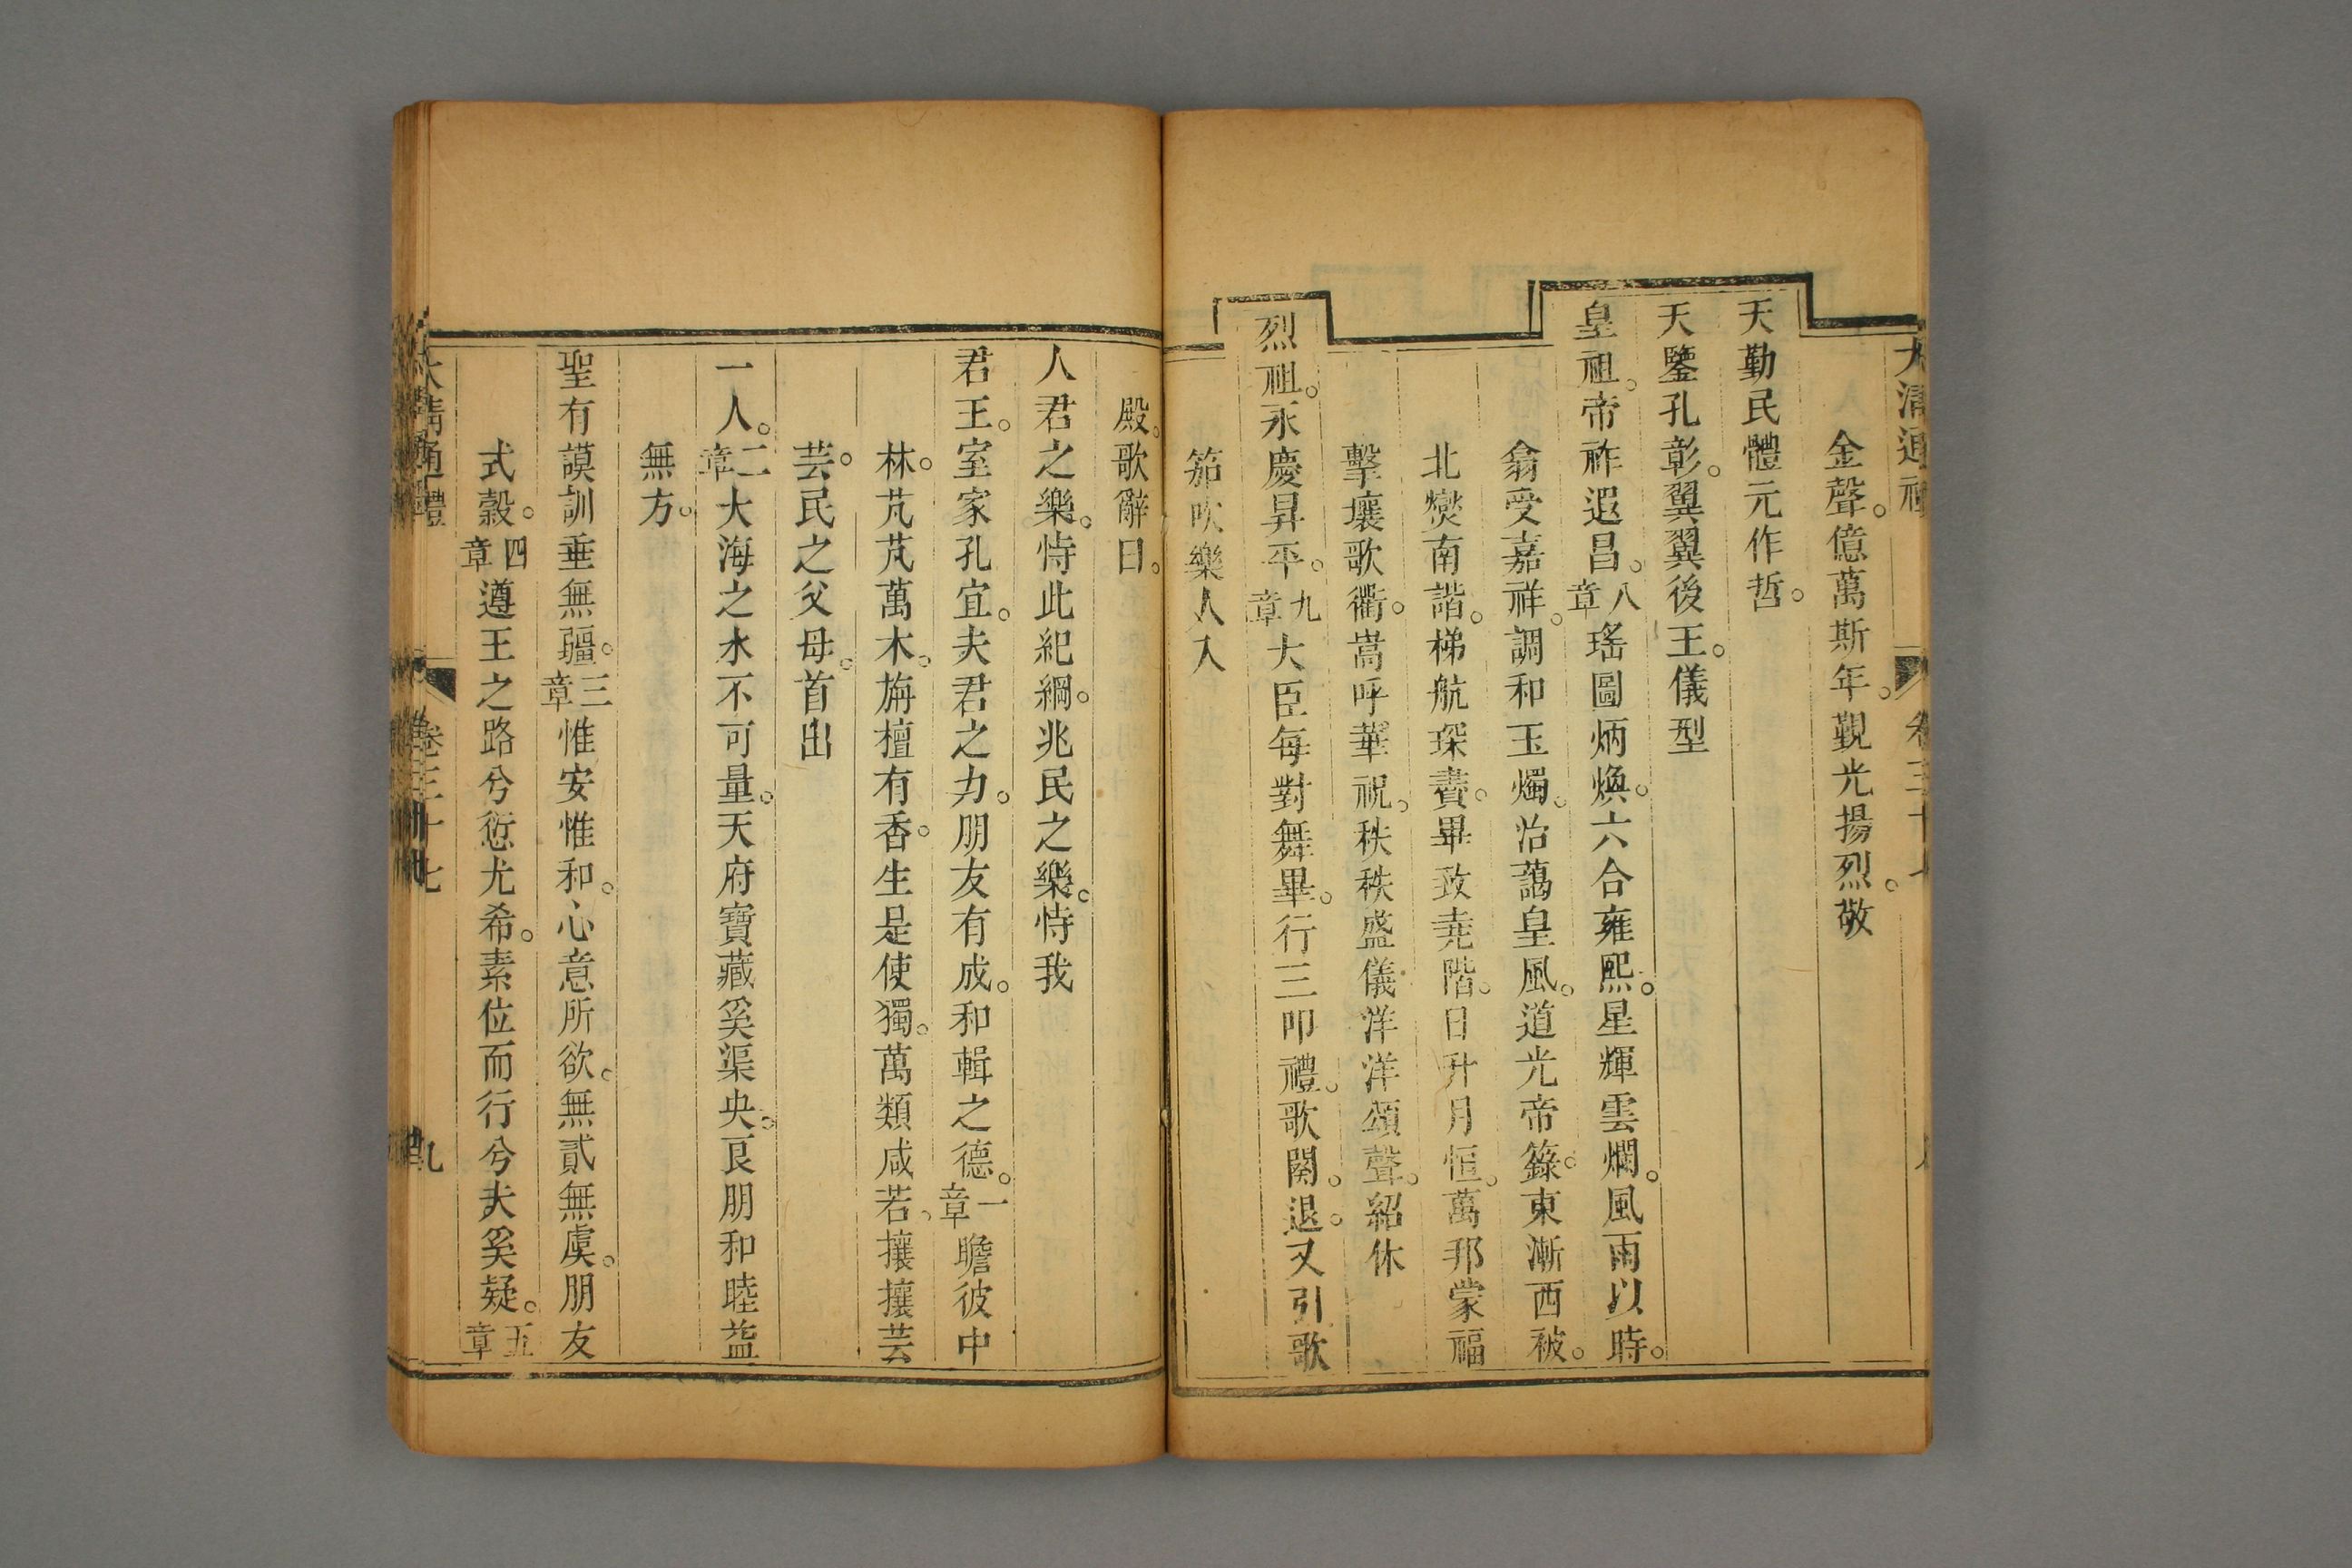 大清通禮 卷三十七
金聲。億萬斯年。覲光揚烈。敬
天勤民體元作哲。
天鑒孔彰。翼翼後王。儀型
皇祖。帝祚遐昌。八章瑤圖炳煥。六合雍熙。星輝雲爛。風雨以時。
翕受嘉祥。調和玉燭。治藹皇風。道光帝籙。東漸西被。
北燮南諧。梯航琛賮。畢致堯階。日升月恒。萬邦蒙福
擊壤歌衢。嵩呼華祝。秩秩盛儀洋洋頌聲。紹休
烈祖。永慶昇平。九章大臣每對舞畢。行三叩禮。歌闋。退。又引歌
笳吹樂人入
殿。歌辭曰。
人君之樂。恃此紀綱。兆民之樂。恃我
君王。室家孔宜。夫君之力。朋友有成。和輯之德。一章瞻彼中
林。芃芃萬木。旃檀有香。生是使獨。萬類咸若。攘攘芸
芸。民之父母。首出
一人。二章大海之水不可量。天府寶藏奚渠央。良朋和睦益
無方。
聖有謨訓垂無疆。三章惟安惟和。心意所欲。無貳無虞。朋友
式穀。四章遵王之路兮愆尤希。素位而行兮夫奚疑。五章
大清通禮 卷三十七 九